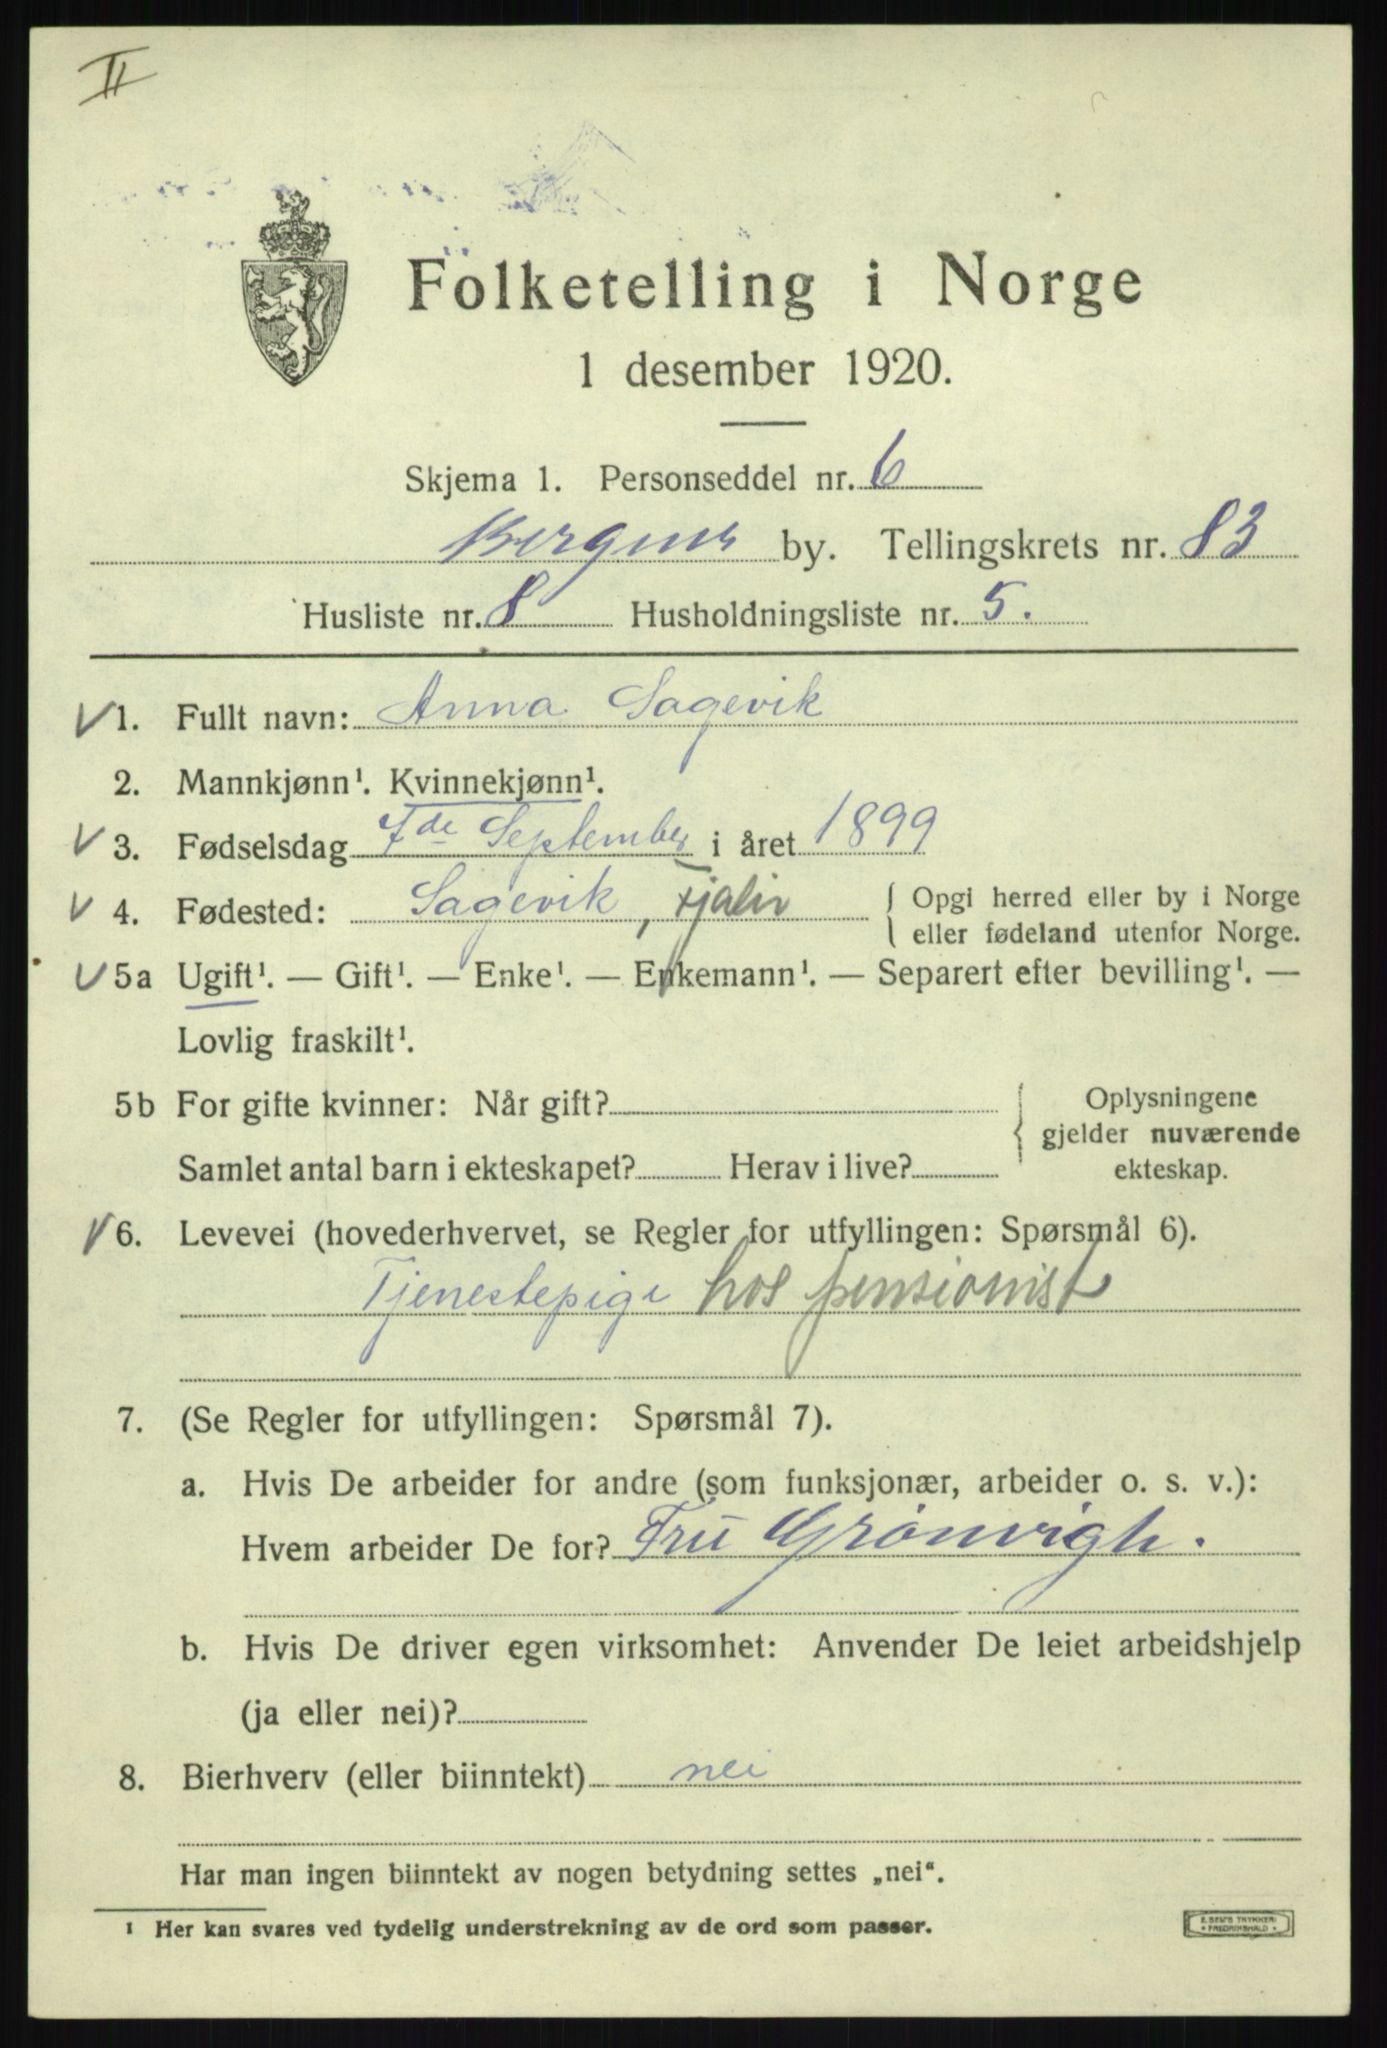 II
Folketelling i Norge
1 desember 1920.
Skjema 1. Personseddel nr. 6
Bergens by. Tellingskrets nr. 83
Husliste nr. 8 Husholdningsliste nr. 5.
1. Fullt navn: Anna Sagevik
2. Mannkjønn¹. Kvinnekjønn¹.
3. Fødselsdag 7de September i året 1899
4. Fødested: Sagevik, Fjaler { Opgi herred eller by i Norge
eller fødeland utenfor Norge.
5a Ugift¹. — Gift¹. — Enke¹. — Enkemann¹. — Separert efter bevilling¹. —
Lovlig fraskilt¹.
5b For gifte kvinner: Når gift? { Oplysningene
gjelder nuværende
Samlet antal barn i ekteskapet? Herav i live? ekteskap.
6. Levevei (hovederhvervet, se Regler for utfyllingen: Spørsmål 6).
Tjenestepige hos pensionist
7. (Se Regler for utfyllingen: Spørsmål 7).
a. Hvis De arbeider for andre (som funksjonær, arbeider o. s. v.):
Hvem arbeider De for? Fru Grönvigh.
b. Hvis De driver egen virksomhet: Anvender De leiet arbeidshjelp
(ja eller nei)?
8. Bierhverv (eller biinntekt) nei
Har man ingen biinntekt av nogen betydning settes „nei“.
¹ Her kan svares ved tydelig understrekning av de ord som passer.
E. SEM'S TRYKKERI
• FREDRIKSHALD •